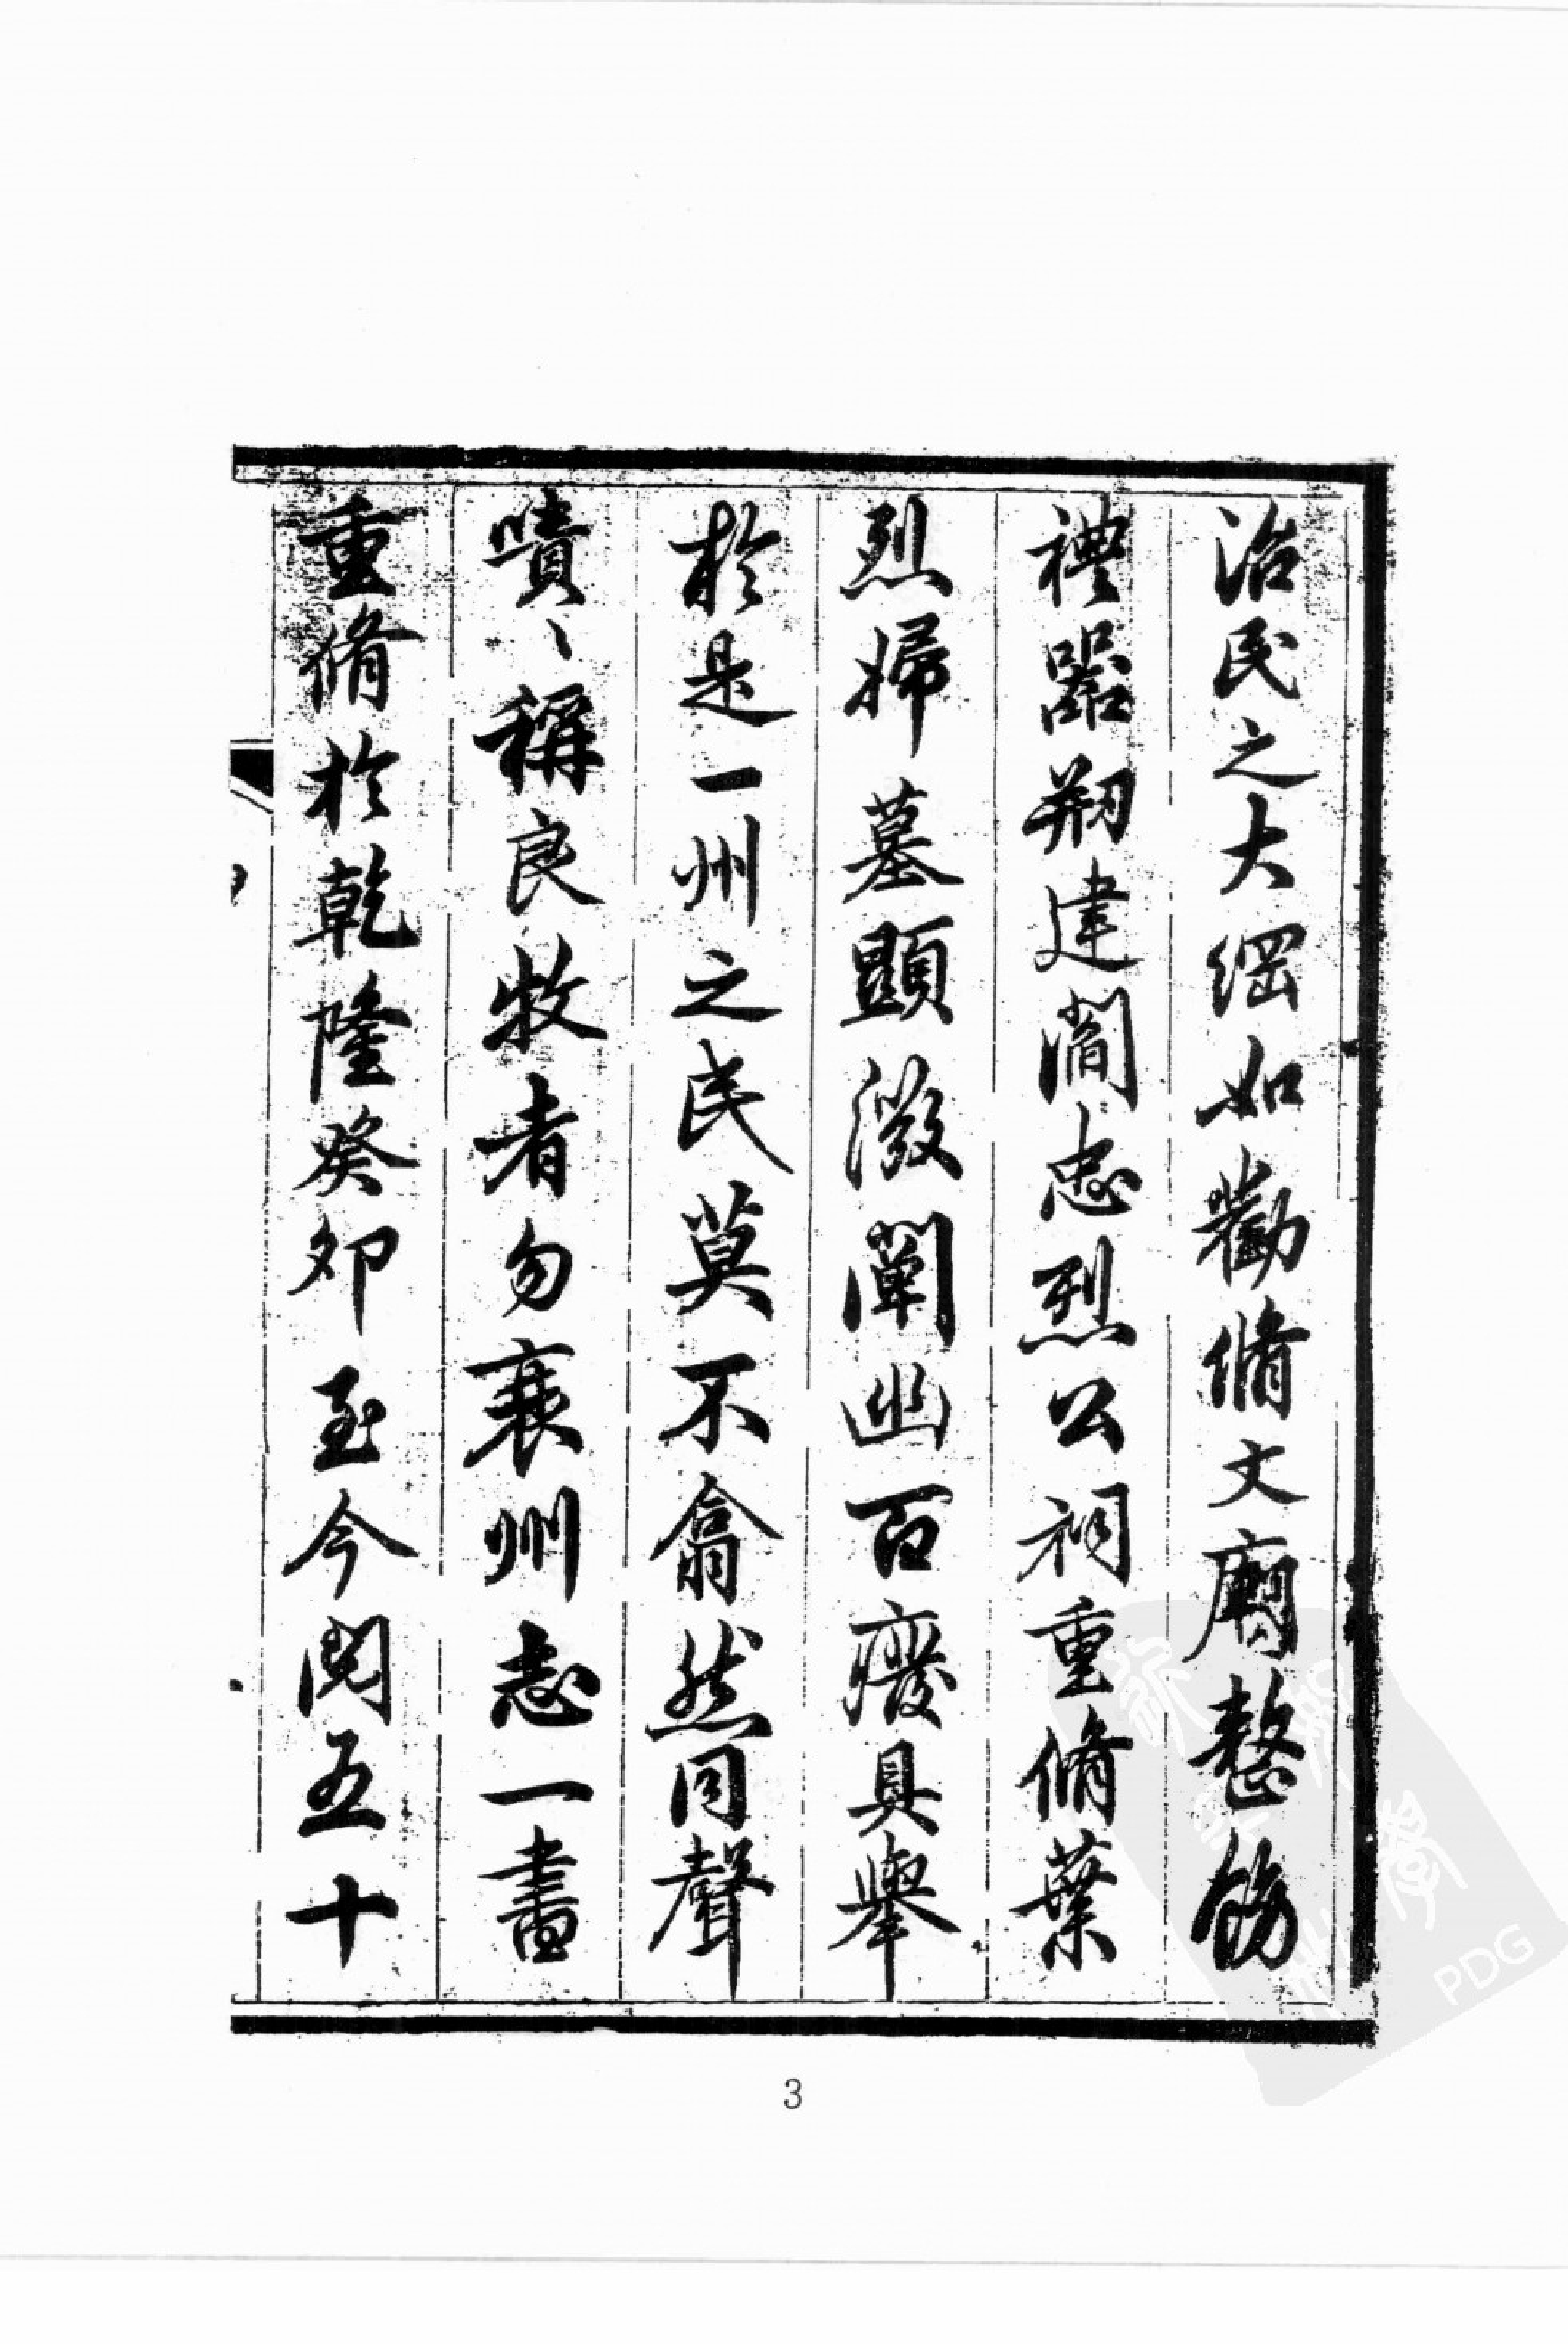 治民之大綱如勸脩文廟整飭
禮器剏建閻忠烈公祠重脩葉
烈婦墓顯微闡幽百廢具舉
於是一州之民莫不翕然同聲
嘖〻稱良牧者勿衰州志一書
重脩於乾隆癸卯至今閱五十
3
PDG